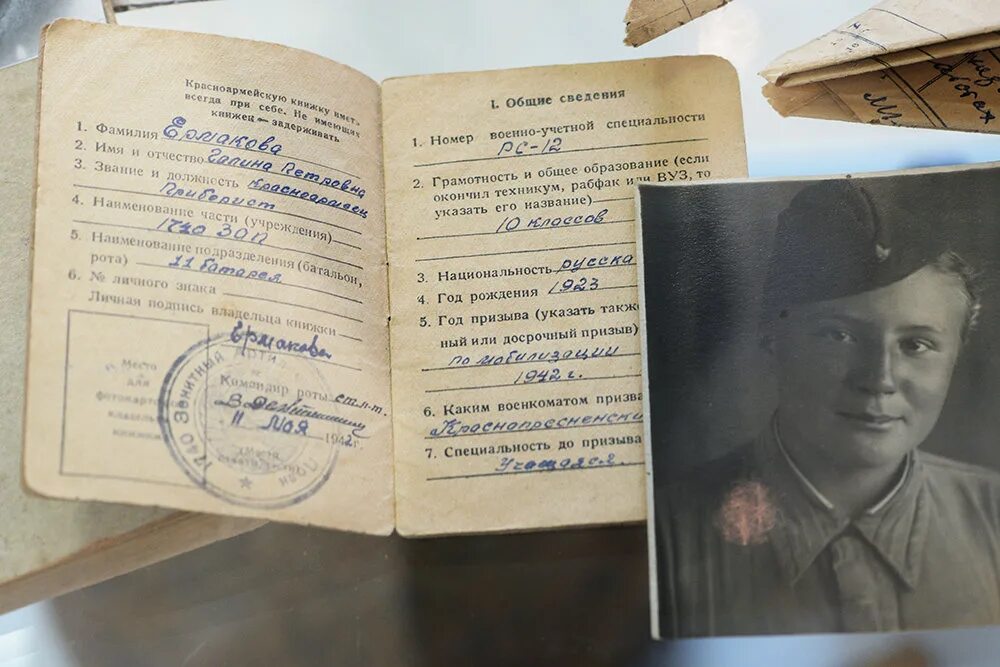 Красноармейскую книжку имет.
всегда при себе. Не имеющих
книжек — задерживать
1. Фамилия Ермакова
2. Имя и отчество Галина Петровна
3. Звание и должность Красноармеец
Приборист
4. Наименование части (учреждения)
1740 ЗАП
5. Наименование подразделения (батальон,
рота) 11 батарея
6. № личного знака
Личная подпись владельца книжки
Ермакова
Место
для
Командир роты ст. л-т.
11 мая 1942 г.
1740 Зенитный Арти
полк
I. Общие сведения
1. Номер военно-учетной специальности
РС-12
2. Грамотность и общее образование (если
окончил техникум, рабфак или ВУЗ, то
указать его название)
10 классов
3. Национальность русска
4. Год рождения 1923
5. Год призыва (указать такж
ный или досрочный призыв)
по мобилизации
1942 г.
6. Каким военкоматом призва
Краснопресненски
7. Специальность до призыва
Учащаяся